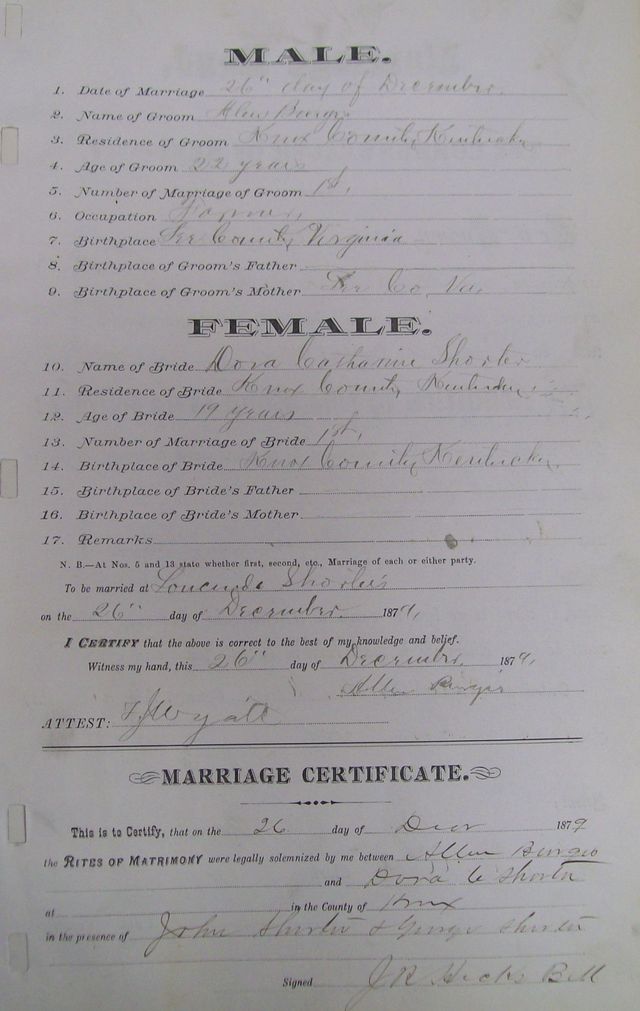 MALE.
1. Date of Marriage 26" day of December.
2. Name of Groom
3. Residence of Groom Knox County Kentucky
4. Age of Groom 22 years
5. Number of Marriage of Groom 1st,
6. Occupation Farmer,
7. Birthplace Lee County Virginia
8. Birthplace of Groom's Father
9. Birthplace of Groom's Mother Lee Co Va,
FEMALE.
10. Name of Bride Dora Catharine Shorter
11. Residence of Bride Knox County Kentucky
12. Age of Bride 19 years
13. Number of Marriage of Bride 1st,
14. Birthplace of Bride Knox County Kentucky
15. Birthplace of Bride's Father
16. Birthplace of Bride's Mother
17. Remarks
N. B.—At Nos. 5 and 13 state whether first, second, etc., Marriage of each or either party.
To be married at Shorter's
on the 26" day of December. 1879,
I CERTIFY that the above is correct to the best of my knowledge and belief.
Witness my hand, this 26" day of December, 1879,
Allen
ATTEST: Wyatt
MARRIAGE CERTIFICATE.
This is to Certify, that on the 26 day of 1879
the RITES OF MATRIMONY were legally solemnized by me between Allen
and Dora C Shorter
at in the County of Knox
in the presence of John Shorter & George Shorter
Signed J R Hicks